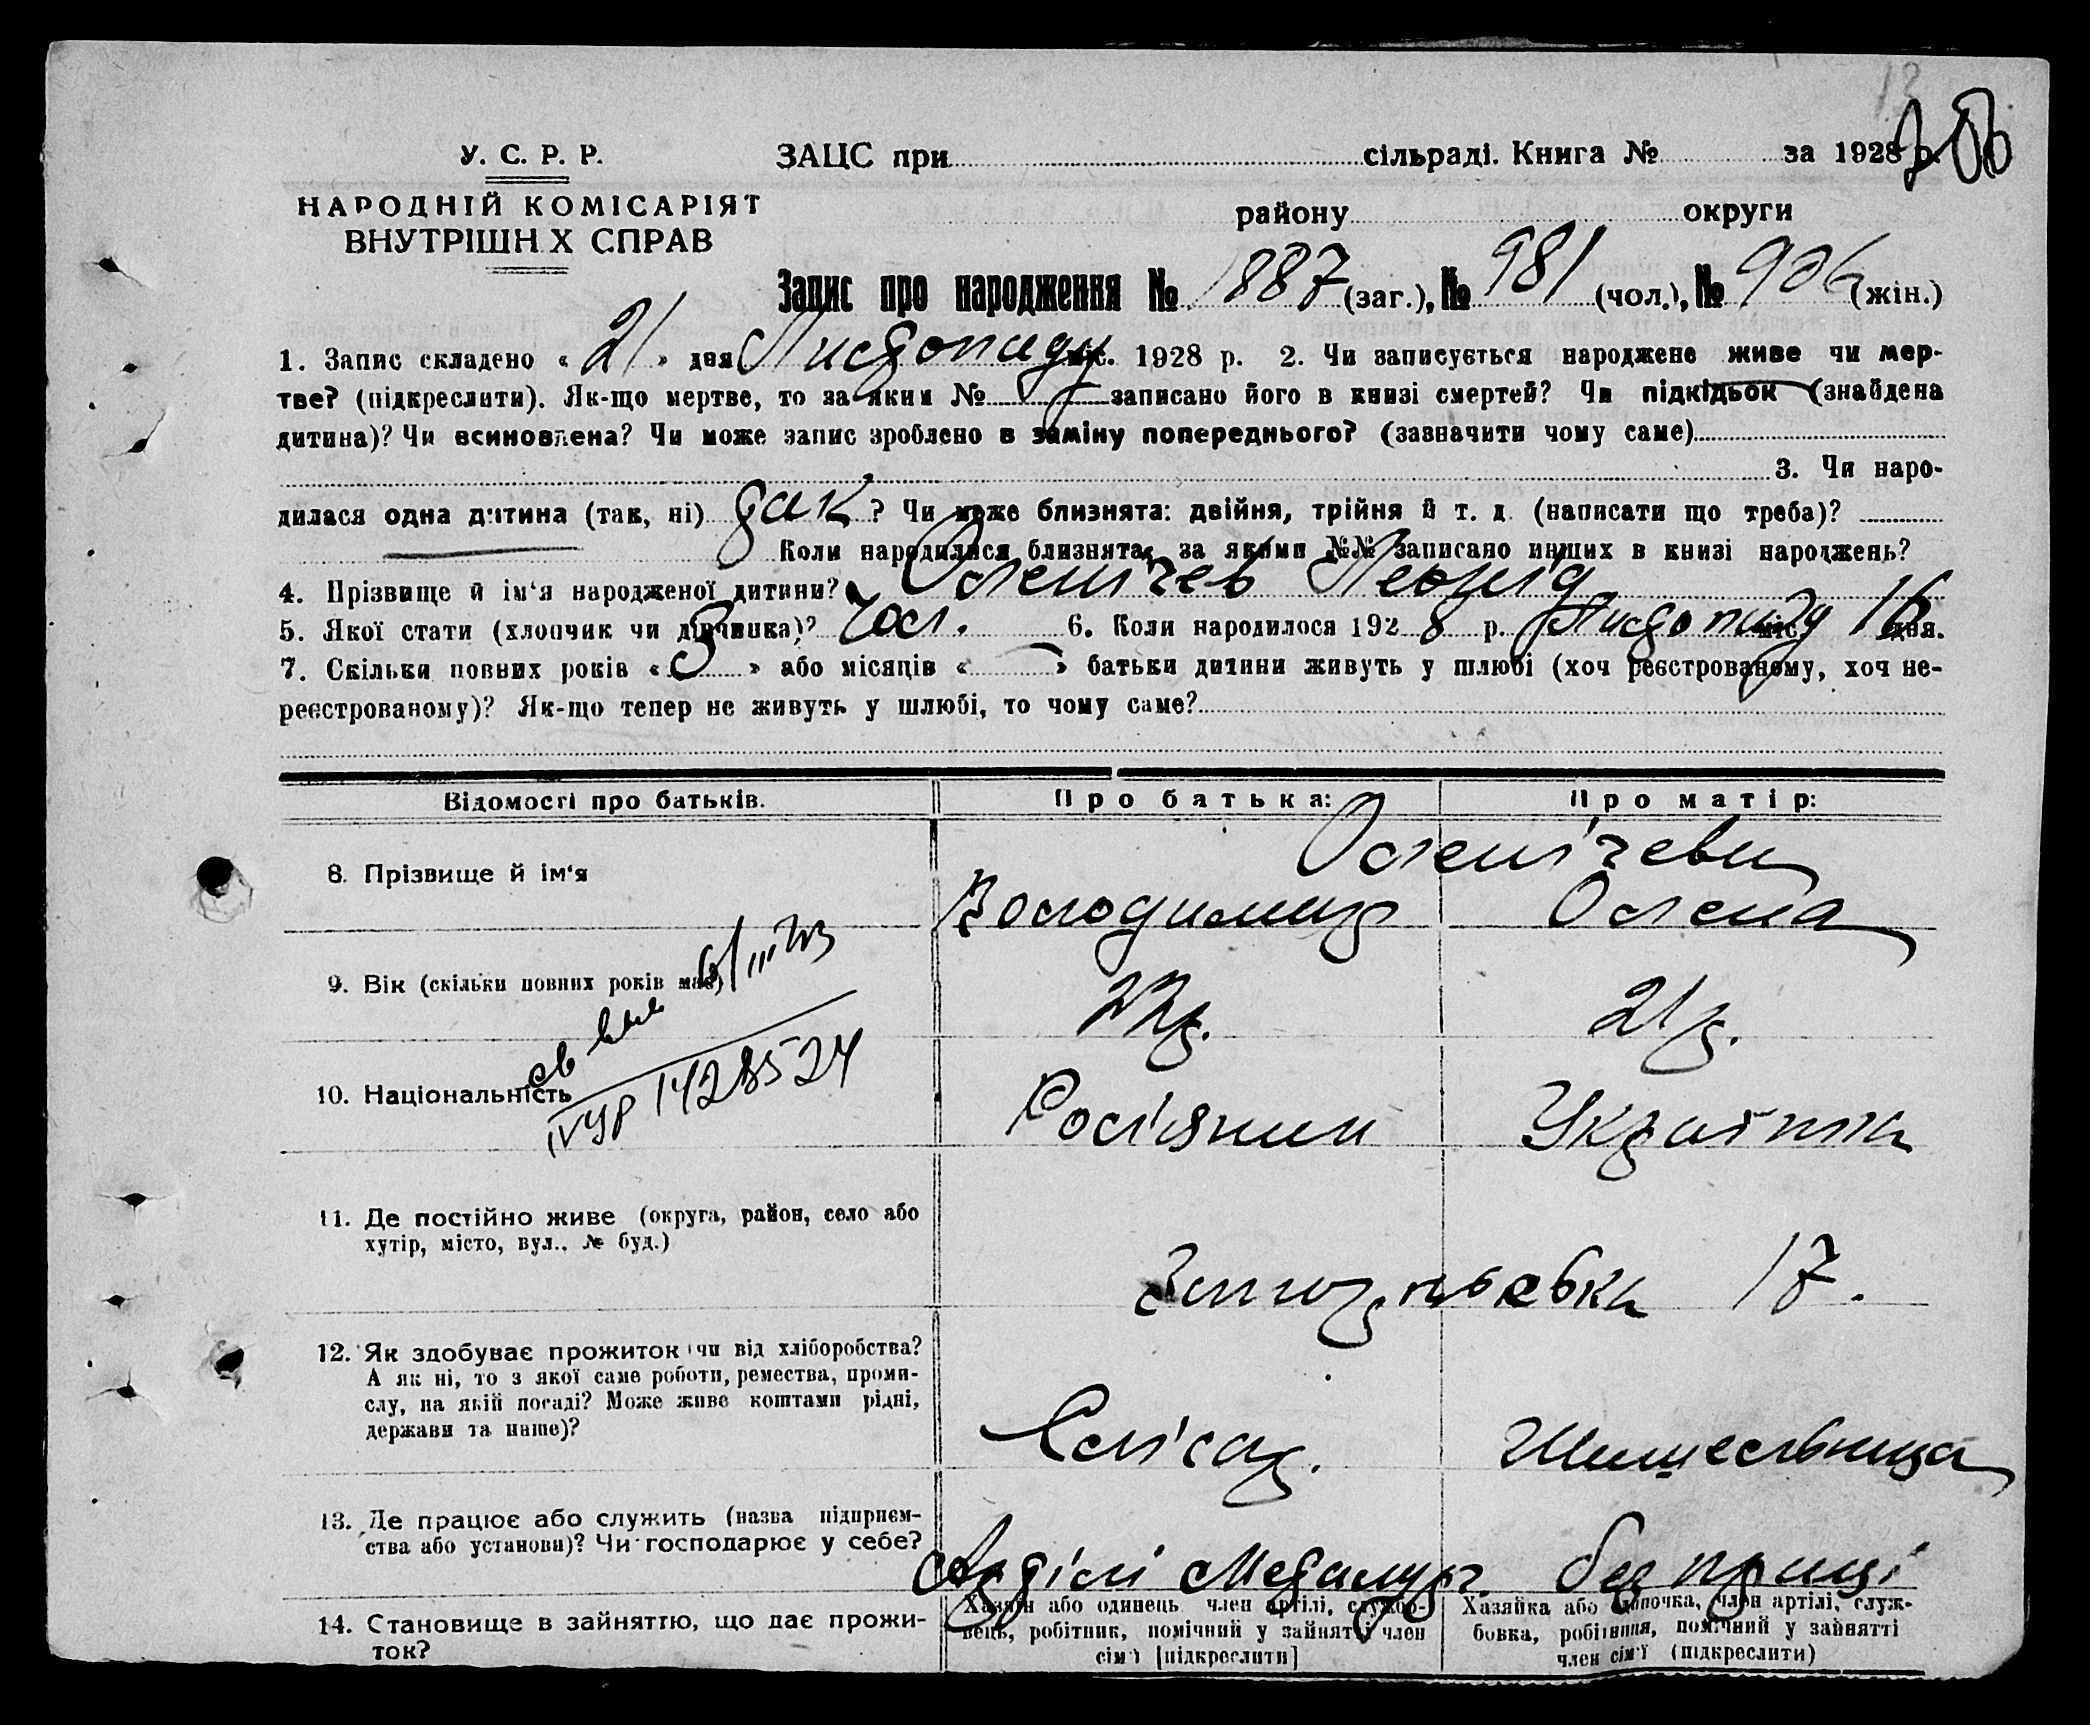 У. С. Р. Р.
НАРОДНІЙ КОМІСАРІЯТ
ВНУТРІШН Х СПРАВ
ЗАЦС при сільраді. Книга № за 1928 р.
району округи
Запис про народження № 1887 (заг.), № 981 (чол.), № 906 (жін.)
1. Запис складено « 21 » дня Листопаду міс. 1928 р. 2. Чи записується народжене живе чи мер-
тве? (підкреслити). Як-що мертве, то за яким № записано його в книзі смертей? Чи підкідьок (знайдена
дитина)? Чи всиновлена? Чи може запис зроблено в заміну попереднього? (зазначити чому саме)
3. Чи наро-
дилася одна дитина (так, ні) так ? Чи може близнята: двійня, трійня й т. д. (написати що треба)?
Коли народилися близнята, за якими №№ записано инших в книзі народжень?
4. Прізвище й ім‘я народженої дитини? Оленічев Леонід
5. Якої стати (хлопчик чи дівчинка)? Чол. 6. Коли народилося 192 8 р. Листопаду міс. 16 дня.
7. Скільки повних років « 3 » або місяців « » батьки дитини живуть у шлюбі (хоч реєстрованому, хоч не-
реєстрованому)? Як-що тепер не живуть у шлюбі, то чому саме?
Відомості про батьків. Про батька: Про матір:
Оленічеви
8. Прізвище й ім‘я Володимир Олена
9. Вік (скільки повних років має) 22р. 21р.
10. Національність Росіянин Українка
IVУР 1428524
11. Де постійно живе (округа, район, село або
хутір, місто, вул., № буд.)
17.
12. Як здобуває прожиток чи від хліборобства?
А як ні, то з якої саме роботи, ремества, проми-
слу, на якій посаді? Може живе коштами рідні,
держави та инше)?
Слісар.
13. Де працює або служить (назва підприєм-
ства або установи)? Чи господарює у себе?
Артілі Металург. без праці
14. Становище в зайняттю, що дає прожи-
ток?
Хазяїн або одинець член артілі, службо-
вець, робітник, помічний у зайнятті член
сім‘ї [підкреслити]
Хазяйка або член артілі, служ-
бовка, робітниця, помічний у зайнятті
член сім‘ї (підкреслити)